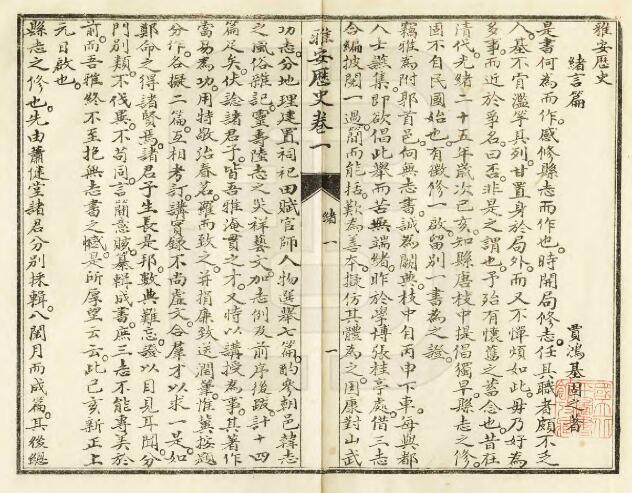 雅安歷史
緒言篇
賈鴻基圖之著
是書何為而作感修縣志而作也時開局修志任其職者頗不乏
人基不肯濫竽其列甘置身於局外而又不憚煩如此毋乃好為
多事而近於爭名曰否非是之謂也予殆有懷舊之蓄念也昔在
清代光緒二十五年歲次己亥知縣唐枝中提倡獨早縣志之修
固不自民國始也有徵修一啟留別一書為之證
竊雅為附郭首邑向無志書誠為闕典枝中自丙申下車每與都
人士讌集即欲倡此舉而苦無端緒昨於學博張桂亭處借三志
合編披閱一過簡而能括歎為善本擬仿其體為之因康對山武
雅安歷史卷一
緒一
一
功志分地理建置祠祀田賦官師人物選舉七篇酌參朝邑韓志
之風俗雜記靈壽陸志之災祥藝文加志例及前序後跋計十四
篇足矣伏諗諸君子皆吾雅海賈之才又特以講授為事其著作
當易為功用特敬治春茗羅而致之并捐廉致送潤筆惟冀按題
分作各擬二篇互相考訂講實錄不尚虛文合羣才以求一是如
鄭命之得諸賢焉諸君子生長是邦數典難忘證以目見耳聞分
門別類不伐異不苟同言簡意賅纂輯成書庶三志不能專美於
前而吾雅終不至抱無志書之憾是所厚望云云此己亥新正上
元日啟也
縣志之修也先由蕭健堂諸君分別採輯八閱月而成篇其後總